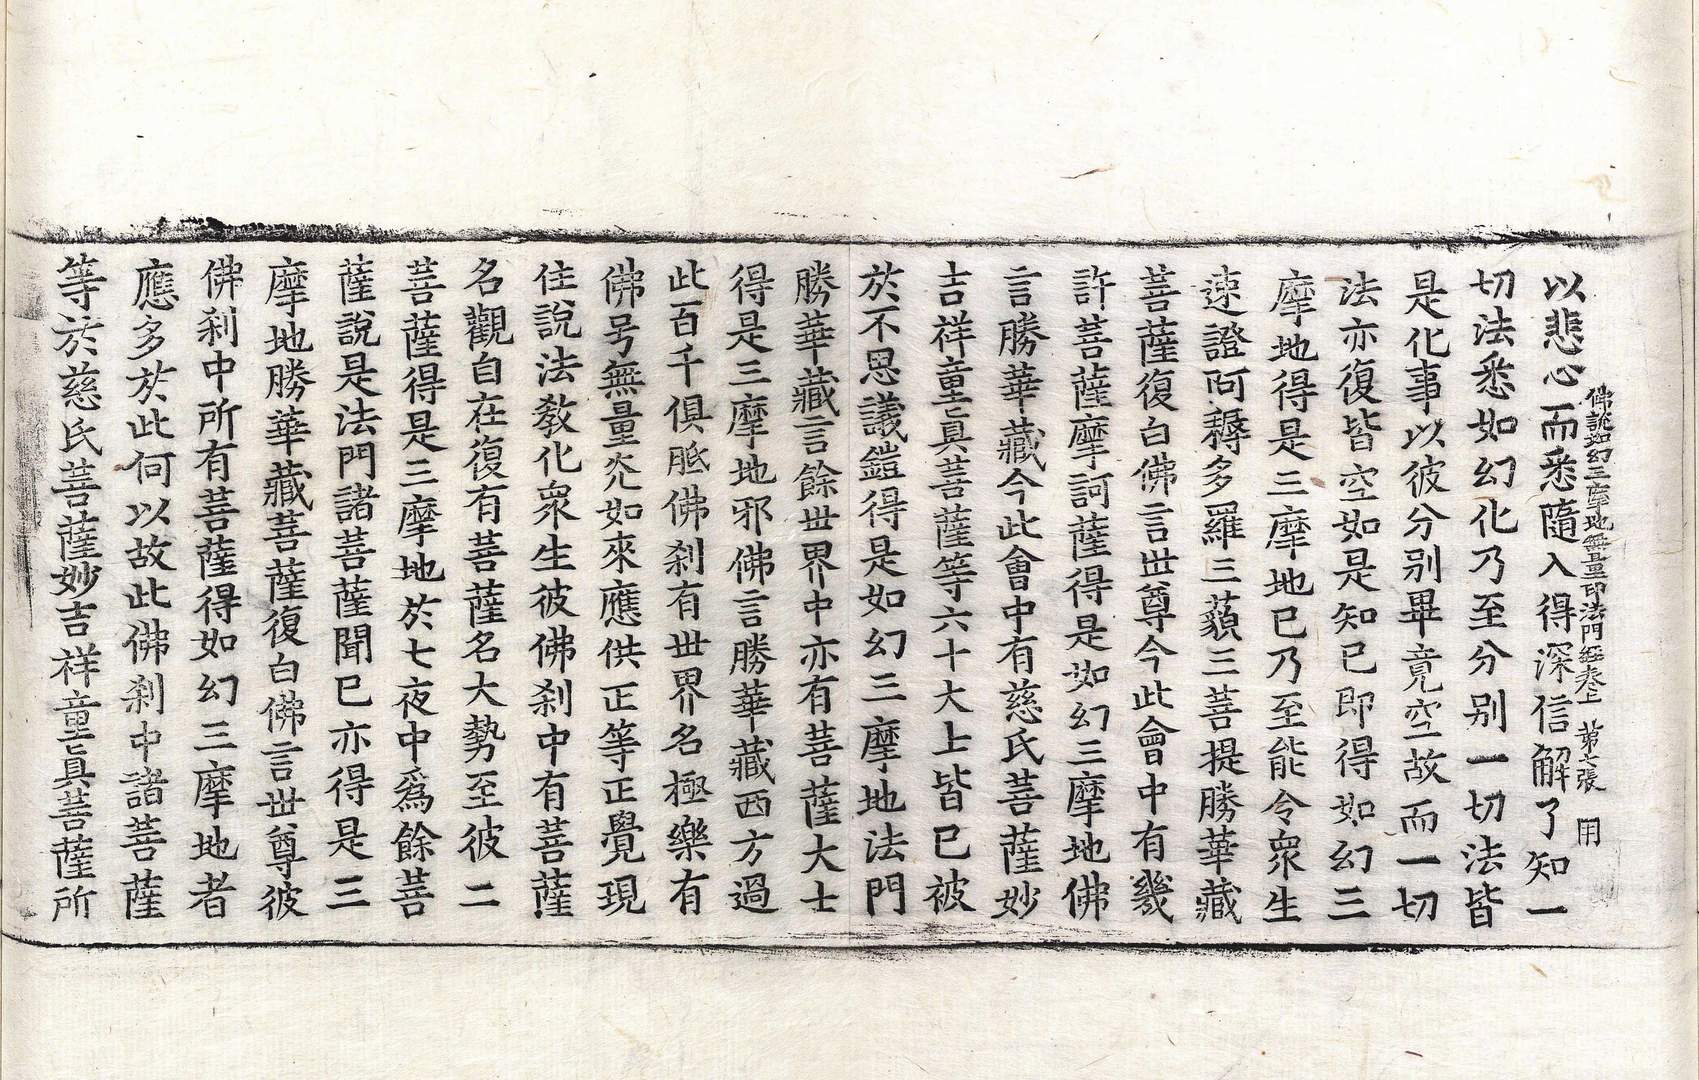 佛說如幻三摩地無量印法門經卷上 第七張 用
以悲心而悉隨入得深信解了知一
切法悉如幻化乃至分別一切法皆
是化事以彼分別畢竟空故而一切
法亦復皆空如是知已即得如幻三
摩地得是三摩地已乃至能令衆生
速證阿耨多羅三藐三菩提勝華藏
菩薩復白佛言世尊今此會中有幾
許菩薩摩訶薩得是如幻三摩地佛
言勝華藏今此會中有慈氏菩薩妙
吉祥童真菩薩等六十大士皆已被
於不思議鎧得是如幻三摩地法門
勝華藏言餘世界中亦有菩薩大士
得是三摩地邪佛言勝華藏西方過
此百千俱胝佛剎有世界名極樂有
佛号無量光如來應供正等正覺現
住說法教化衆生彼佛剎中有菩薩
名觀自在復有菩薩名大勢至彼二
菩薩得是三摩地於七夜中爲餘菩
薩說是法門諸菩薩聞已亦得是三
摩地勝華藏菩薩復白佛言世尊彼
佛剎中所有菩薩得如幻三摩地者
應多於此何以故此佛剎中諸菩薩
等於慈氏菩薩妙吉祥童真菩薩所